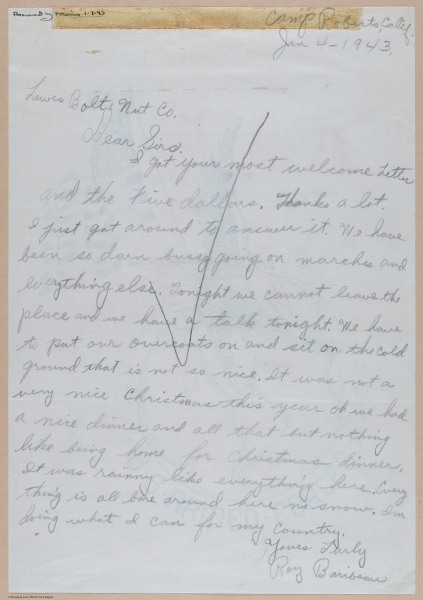 Camp Roberts, Calif.
Jan 4-1943.
Lewis Bolt & Nut Co.
Dear Sirs.
I got your most welcome Letter
and the five dollars. Thanks a lot.
I just got around to answer it. We have
been so darn bussy going on marches and
everything else. Tonight we cannot leave the
place and we have a talk tonight. We have
to put our overcoats on and sit on the cold
ground that is not so nice. It was not a
very nice Christmas this year oh we had
a nice dinner and all that but nothing
like being home for Christmas dinner.
It was rainny like everything here. Every
thing is all bare around here no snow. I'm
doing what I can for my Country.
Yours Turly
Roy Baribeau